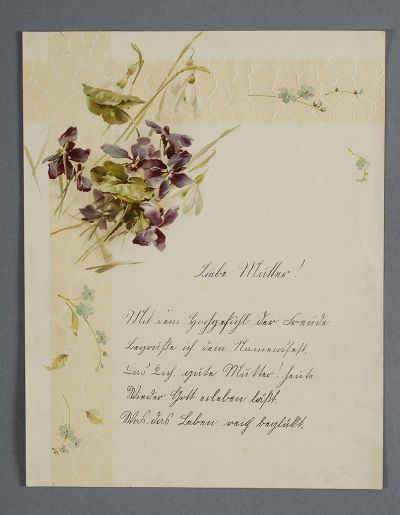 Liebe Mutter!
Mit dem Hochgefühl der Freude
Begrüße ich dein Namensfest,
Das Dich gute Mutter! heute
Wieder Gott erleben läßt.
Was das Leben reich beglükt,